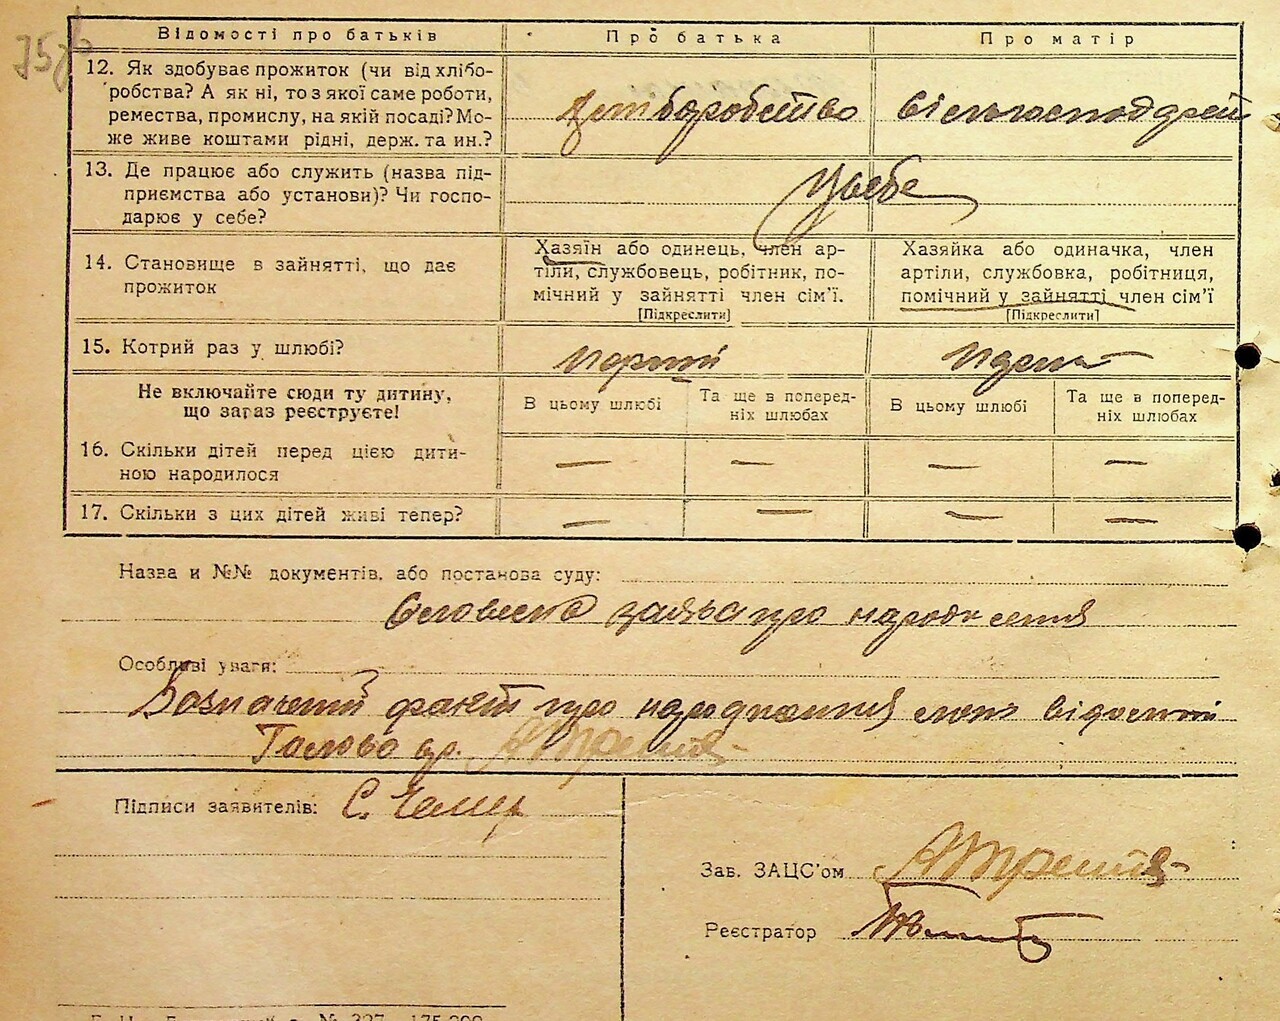 75зв
Відомості про батьків
Про батька
Про матір
12. Як здобуває прожиток (чи від хлібо-
робства? А як ні, то з якої саме роботи,
ремества, промислу, на якій посаді? Мо-
же живе коштами рідні, держ. та ин.?
13. Де працює або служить (назва під-
приємства або установи)? Чи госпо-
дарює у себе?
У себе
14. Становище в зайнятті, що дає
прожиток
Хазяїн або одинець, член ар-
тіли, службовець, робітник, по-
мічний у зайнятті член сім'ї.
[Підкреслити]
Хазяйка або одиначка, член
артіли, службовка, робітниця,
помічний у зайнятті член сім'ї
[Підкреслити]
15. Котрий раз у шлюбі?
Не включайте сюди ту дитину,
що загаз реєструєте!
В цьому шлюбі
Та ще в поперед-
ніх шлюбах
В цьому шлюбі
Та ще в поперед-
ніх шлюбах
16. Скільки дітей перед цією дити-
ною народилося
— — — —
17. Скільки з цих дітей живі тепер?
— — — —
Назва и №№ документів, або постанова суду:
Словесна заява про народження
Особливі уваги:
Зазначений факт про народження мені відомий
Голова
Підписи заявителів: С.
Зав. ЗАЦС'ом
Реєстратор
№ 327 175.200